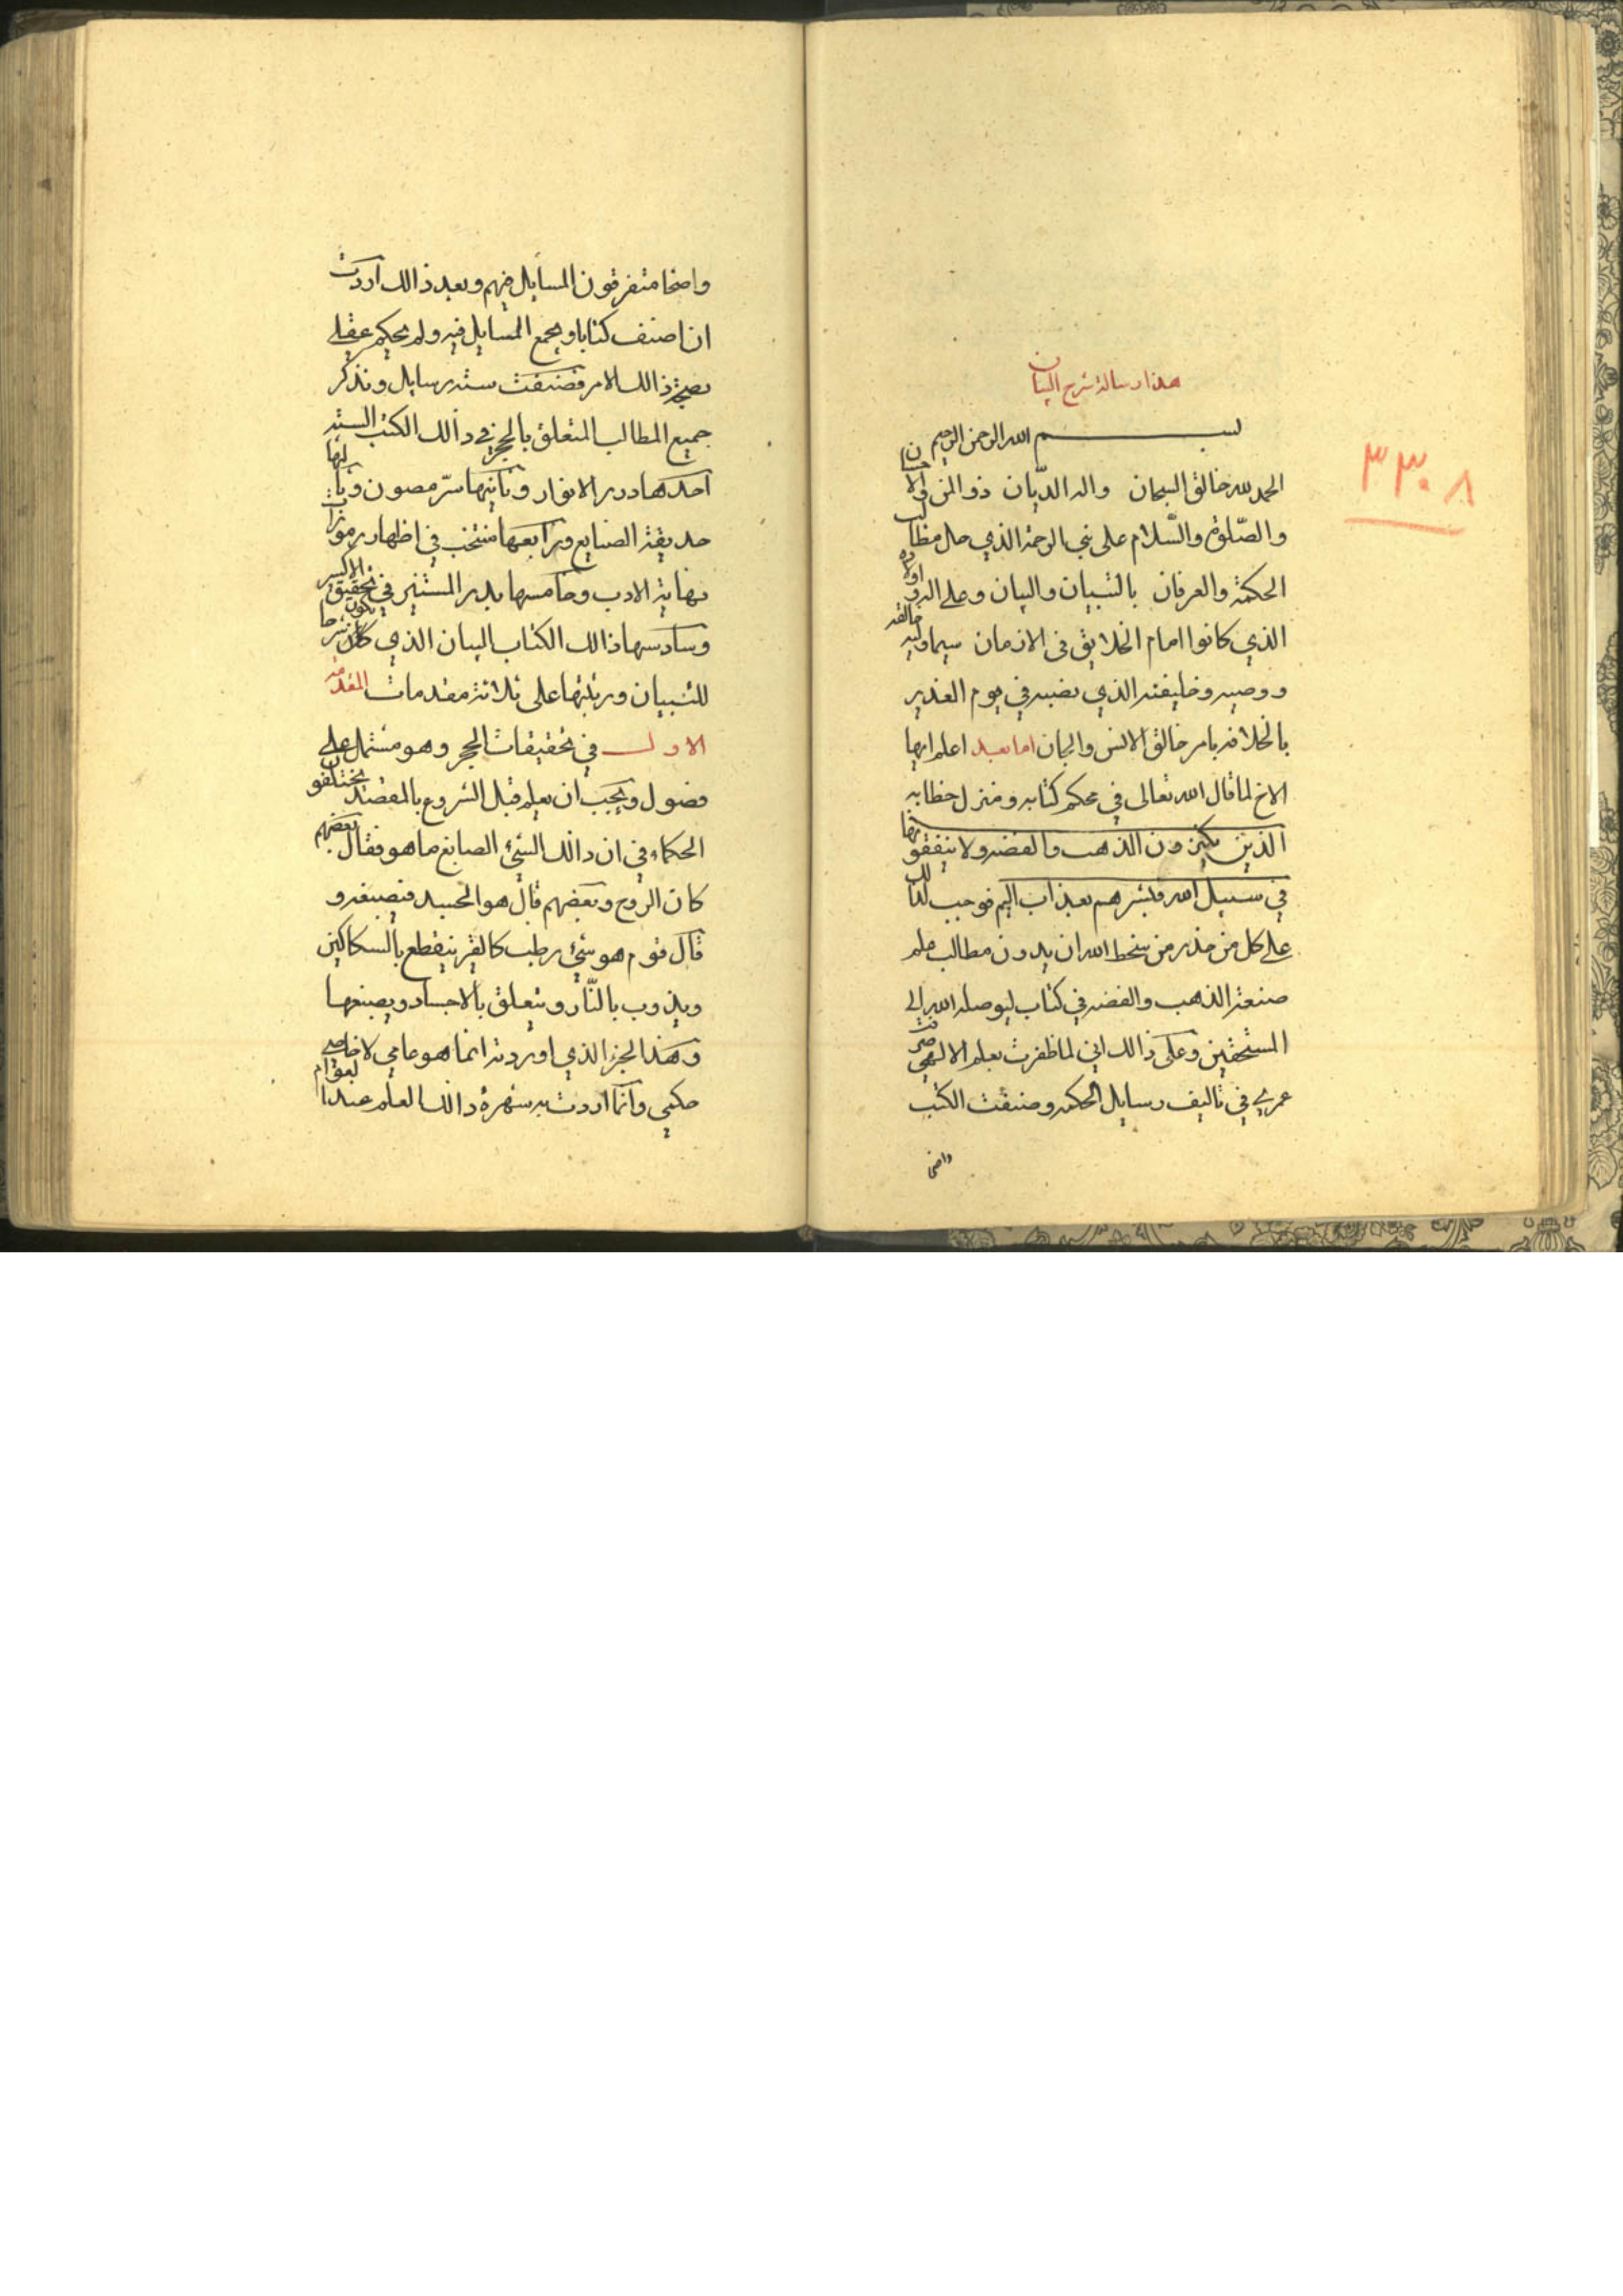 هذا رسالة شرح البيان
بسم الله الرحمن الرحيم
٣٣٠٨
الحمد لله خالق السبحان واله الديّان ذو المن والاحسان
والصّلوة والسّلام على نبي الرحمة الذي حل مطالب
الحكمة والعرفان بالتبيان والبيان وعلى اله واولاده
الذي كانوا امام الخلايق في الازمان سيما وليه خالقه
ووصيه وخليفته الذي نصبه في يوم الغدير
بالخلافه بامر خالق الانس والجان اما بعد اعلم ايها
الاخ لما قال الله تعالى في محكم كتابه ومنزل خطابه
الذين يكنزون الذهب والفضه ولا ينفقونها
في سبيل الله فبشرهم بعذاب اليم فوجب لذالك
على كل من حذر من سخط الله ان يدون مطالب علم
صنعة الذهب والفضه في كتاب ليوصله الله الى
المستحقين وعلى ذالك اني لما ظفرت بعلم الالهي صرفت
عمري في تاليف رسايل الحكمه وصنفت الكتب
واضحا
واضحا متفرقون المسايل فيهم وبعد ذالك اردت
ان اصنف كتابا ويجمع المسايل فيه ولم يحكم عقلي
بصحة ذالك الامر فصنفت سته رسايل ونذكر
جميع المطالب المتعلق بالحجر في ذالك الكتب السته
احدها درر الانوار وثانيها سرّ مصون وثالثها
حديقة الصنايع ورابعها منتخب في اظهار رموزات
نهاية الادب وخامسها بدر المستنير في تحقيق الاكسير
وسادسها ذالك الكتاب البيان الذي يكون شرحا
للتبيان ورتبتها على ثلاثة مقدمات المقدمه
الاول في تحقيقات الحجر وهو مشتمل على
فصول ويجب ان يعلم قبل الشروع بالمقصد يختلفون
الحكماء في ان ذالك الشئ الصابغ ما هو فقال بعضهم
كان الروح وبعضهم قال هو الجسد فيصبغه و
قال قوم هو شئ رطب كالقير ينقطع بالسكاكين
ويذوب بالنّار ويتعلق بالاجساد ويصبغها
وهذا الجز الذي اوردته انما هو عامي لا خاصي
حكمي وانما اردت به شهرة ذالك العلم عند العوام